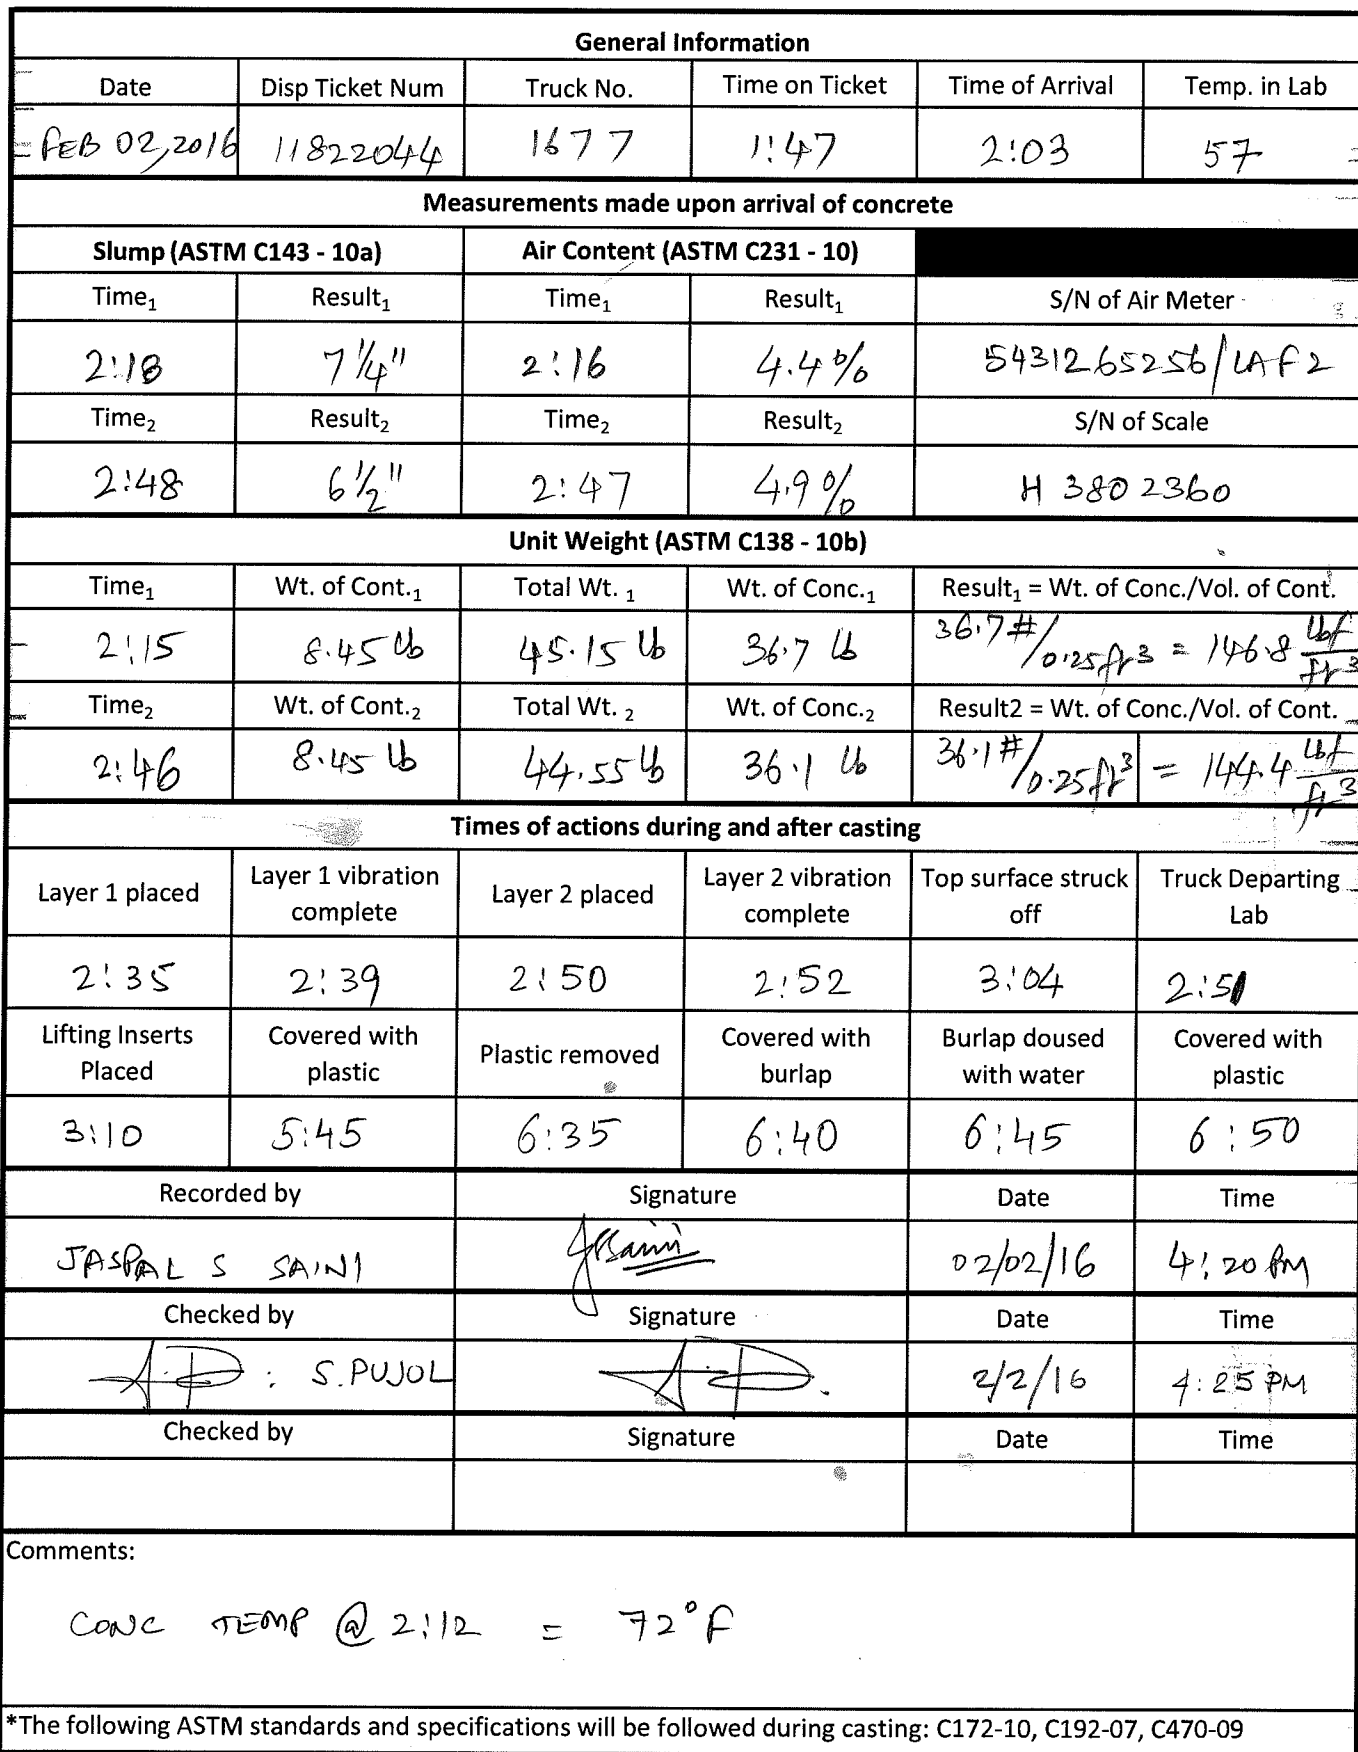 General Information
Date Disp Ticket Num Truck No. Time on Ticket Time of Arrival Temp. in Lab
FEB 02, 2016 11822044 1677 1:47 2:03 57
Measurements made upon arrival of concrete
Slump (ASTM C143 - 10a) Air Content (ASTM C231 - 10)
Time₁ Result₁ Time₁ Result₁ S/N of Air Meter
2:18 7 1/4" 2:16 4.4% 5431265256/LAF2
Time₂ Result₂ Time₂ Result₂ S/N of Scale
2:48 6 1/2" 2:47 4.9% H 3802360
Unit Weight (ASTM C138 - 10b)
Time₁ Wt. of Cont.₁ Total Wt. ₁ Wt. of Conc.₁ Result₁ = Wt. of Conc./Vol. of Cont.
2:15 8.45 lb 45.15 lb 36.7 lb 36.7#/0.25ft³ = 146.8 lbf/ft³
Time₂ Wt. of Cont.₂ Total Wt. ₂ Wt. of Conc.₂ Result2 = Wt. of Conc./Vol. of Cont.
2:46 8.45 lb 44.55 lb 36.1 lb 36.1#/0.25ft³ = 144.4 lbf/ft³
Times of actions during and after casting
Layer 1 placed Layer 1 vibration complete Layer 2 placed Layer 2 vibration complete Top surface struck off Truck Departing Lab
2:35 2:39 2:50 2:52 3:04 2:51
Lifting Inserts Placed Covered with plastic Plastic removed Covered with burlap Burlap doused with water Covered with plastic
3:10 5:45 6:35 6:40 6:45 6:50
Recorded by Signature Date Time
JASPAL S SAINI JSSaini 02/02/16 4:20 PM
Checked by Signature Date Time
: S.PUJOL 2/2/16 4:25 PM
Checked by Signature Date Time
Comments:
CONC TEMP @ 2:12 = 72°F
*The following ASTM standards and specifications will be followed during casting: C172-10, C192-07, C470-09